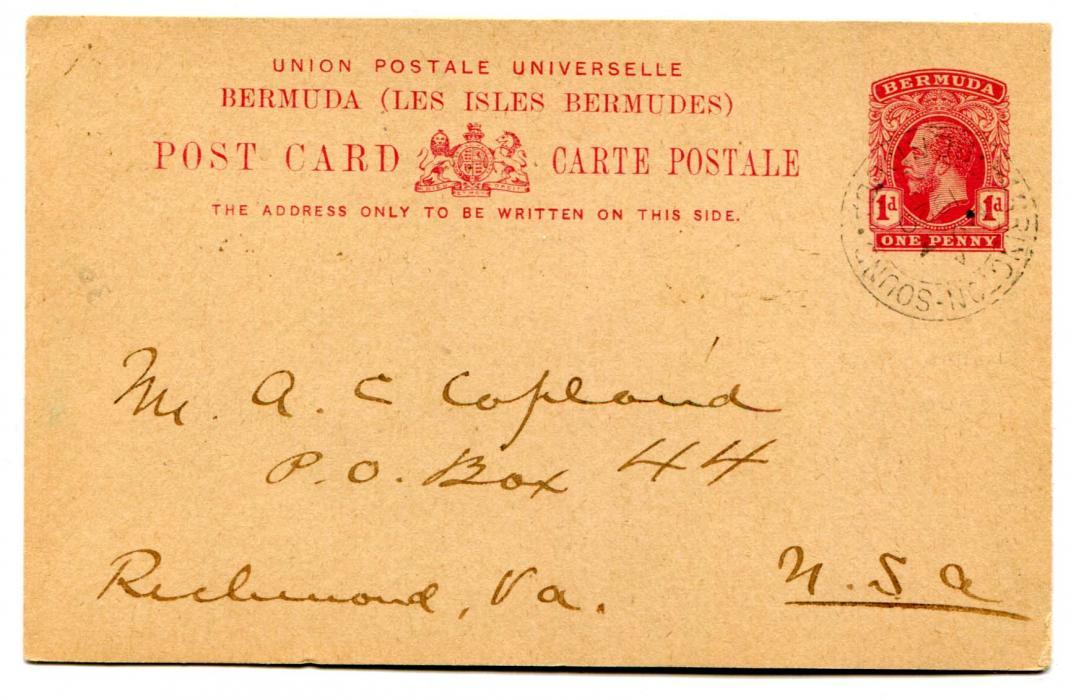 UNION POSTALE UNIVERSELLE
BERMUDA (LES ISLES BERMUDES)
POST CARD CARTE POSTALE
THE ADDRESS ONLY TO BE WRITTEN ON THIS SIDE.
BERMUDA
1d 1d
ONE PENNY
Mr. A. C Copland
P.O. Box 44
Richmond, Va. U.S.A